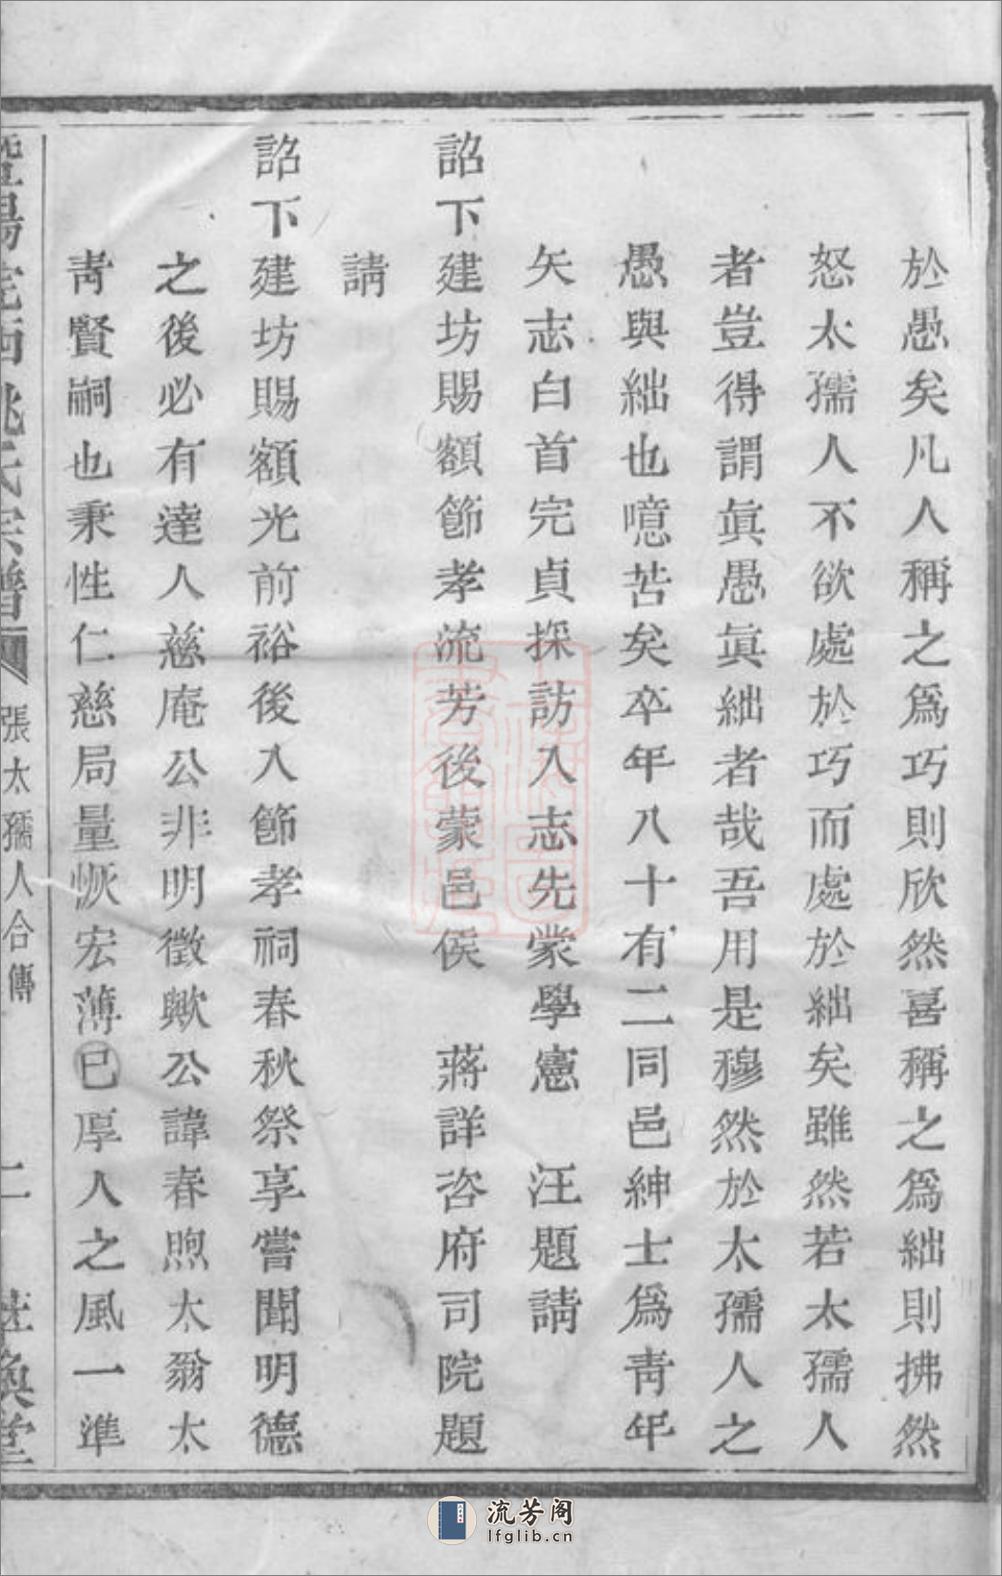 於愚矣凡人稱之爲巧則欣然喜稱之爲絀則拂然
怒太孺人不欲處於巧而處於絀矣雖然若太孺人
者豈得謂眞愚眞絀者哉吾用是穆然於太孺人之
愚與絀也噫苦矣卒年八十有二同邑紳士爲靑年
矢志白首完貞採訪入志先蒙學憲 汪題請
詔下建坊賜額節孝流芳後蒙邑侯 蔣詳咨府司院題
請
詔下建坊賜額光前裕後入節孝祠春秋祭享嘗聞明德
之後必有達人慈庵公非明徵歟公諱春煦太翁太
靑賢嗣也秉性仁慈局量恢宏薄己厚人之風一準
暨陽 西 氏宗譜
張太孺人合傳
二
煥堂
流芳阁
lfglib.cn